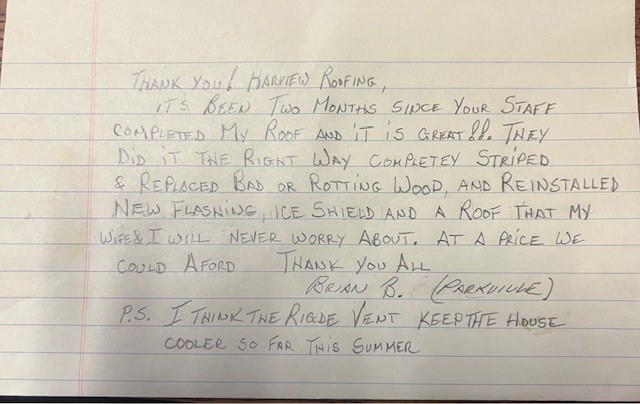 THANK YOU! HARVIEW ROOFING,
ITS BEEN TWO MONTHS SINCE YOUR STAFF
COMPLETED MY ROOF AND IT IS GREAT!!. THEY
DID IT THE RIGHT WAY COMPLETEY STRIPED
& REPLACED BAD OR ROTTING WOOD, AND REINSTALLED
NEW FLASHING, ICE SHIELD AND A ROOF THAT MY
WIFE & I WILL NEVER WORRY ABOUT. AT A PRICE WE
COULD AFORD THANK YOU ALL
BRIAN B. (PARKVILLE)
P.S. I THINK THE RIGDE VENT KEEP THE HOUSE
COOLER SO FAR THIS SUMMER